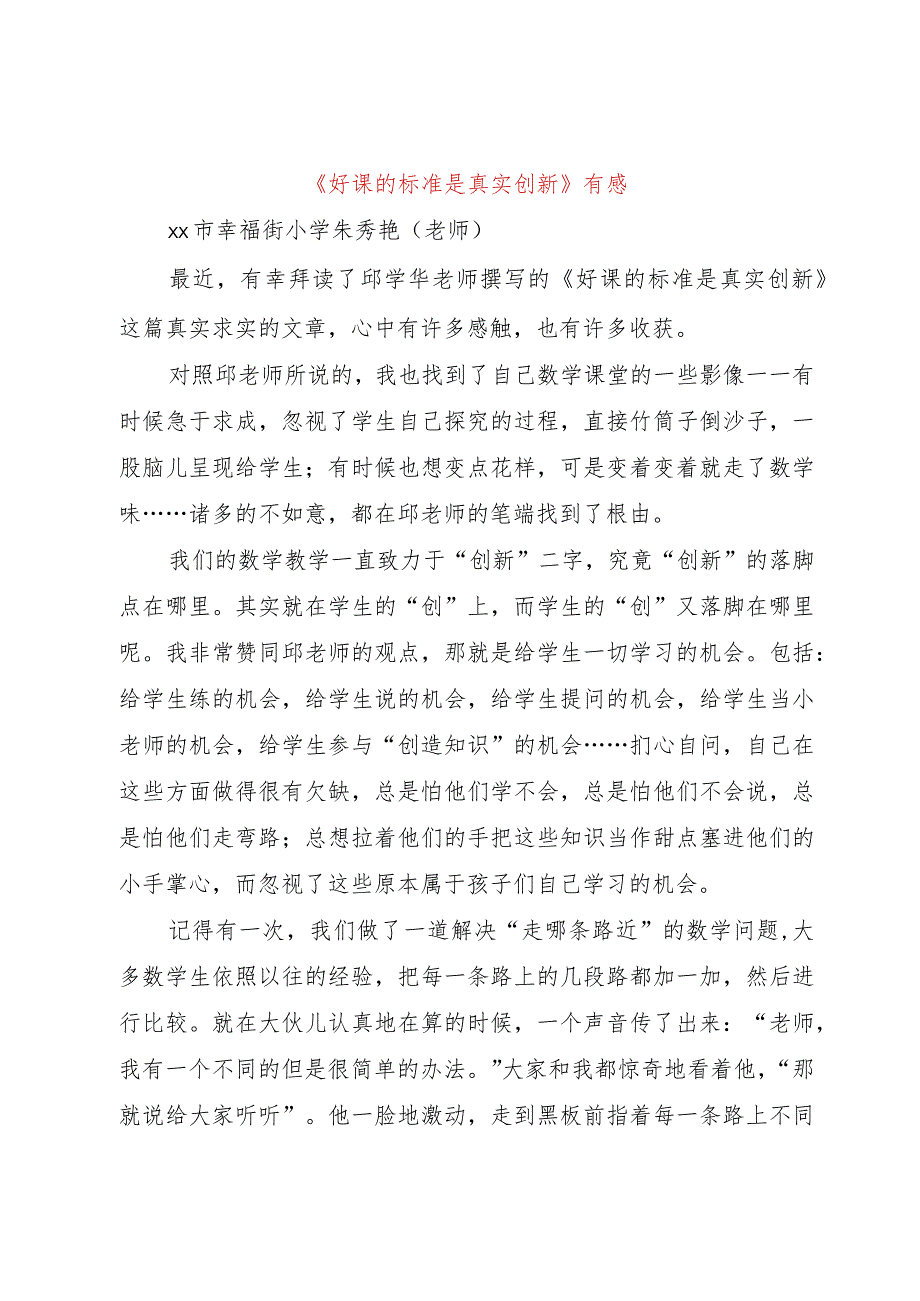 《好课的标准是真实创新》有感
xx市幸福街小学朱秀艳（老师）
最近，有幸拜读了邱学华老师撰写的《好课的标准是真实创新》
这篇真实求实的文章，心中有许多感触，也有许多收获。
对照邱老师所说的，我也找到了自己数学课堂的一些影像一一有
时候急于求成，忽视了学生自己探究的过程，直接竹筒子倒沙子，一
股脑儿呈现给学生；有时候也想变点花样，可是变着变着就走了数学
味……诸多的不如意，都在邱老师的笔端找到了根由。
我们的数学教学一直致力于“创新”二字，究竟“创新”的落脚
点在哪里。其实就在学生的“创”上，而学生的“创”又落脚在哪里
呢。我非常赞同邱老师的观点，那就是给学生一切学习的机会。包括：
给学生练的机会，给学生说的机会，给学生提问的机会，给学生当小
老师的机会，给学生参与“创造知识”的机会……扪心自问，自己在
这些方面做得很有欠缺，总是怕他们学不会，总是怕他们不会说，总
是怕他们走弯路；总想拉着他们的手把这些知识当作甜点塞进他们的
小手掌心，而忽视了这些原本属于孩子们自己学习的机会。
记得有一次，我们做了一道解决“走哪条路近”的数学问题,大
多数学生依照以往的经验，把每一条路上的几段路都加一加，然后进
行比较。就在大伙儿认真地在算的时候，一个声音传了出来：“老师，
我有一个不同的但是很简单的办法。”大家和我都惊奇地看着他，“那
就说给大家听听”。他一脸地激动，走到黑板前指着每一条路上不同